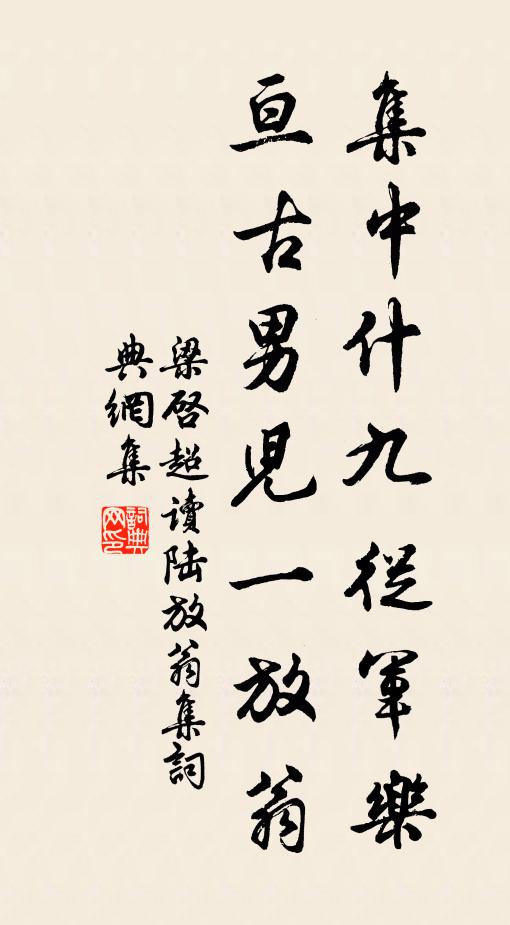 集中什九從軍樂
亘古男兒一放翁
梁啓超讀陸放翁集詞
典網集
詞典网印